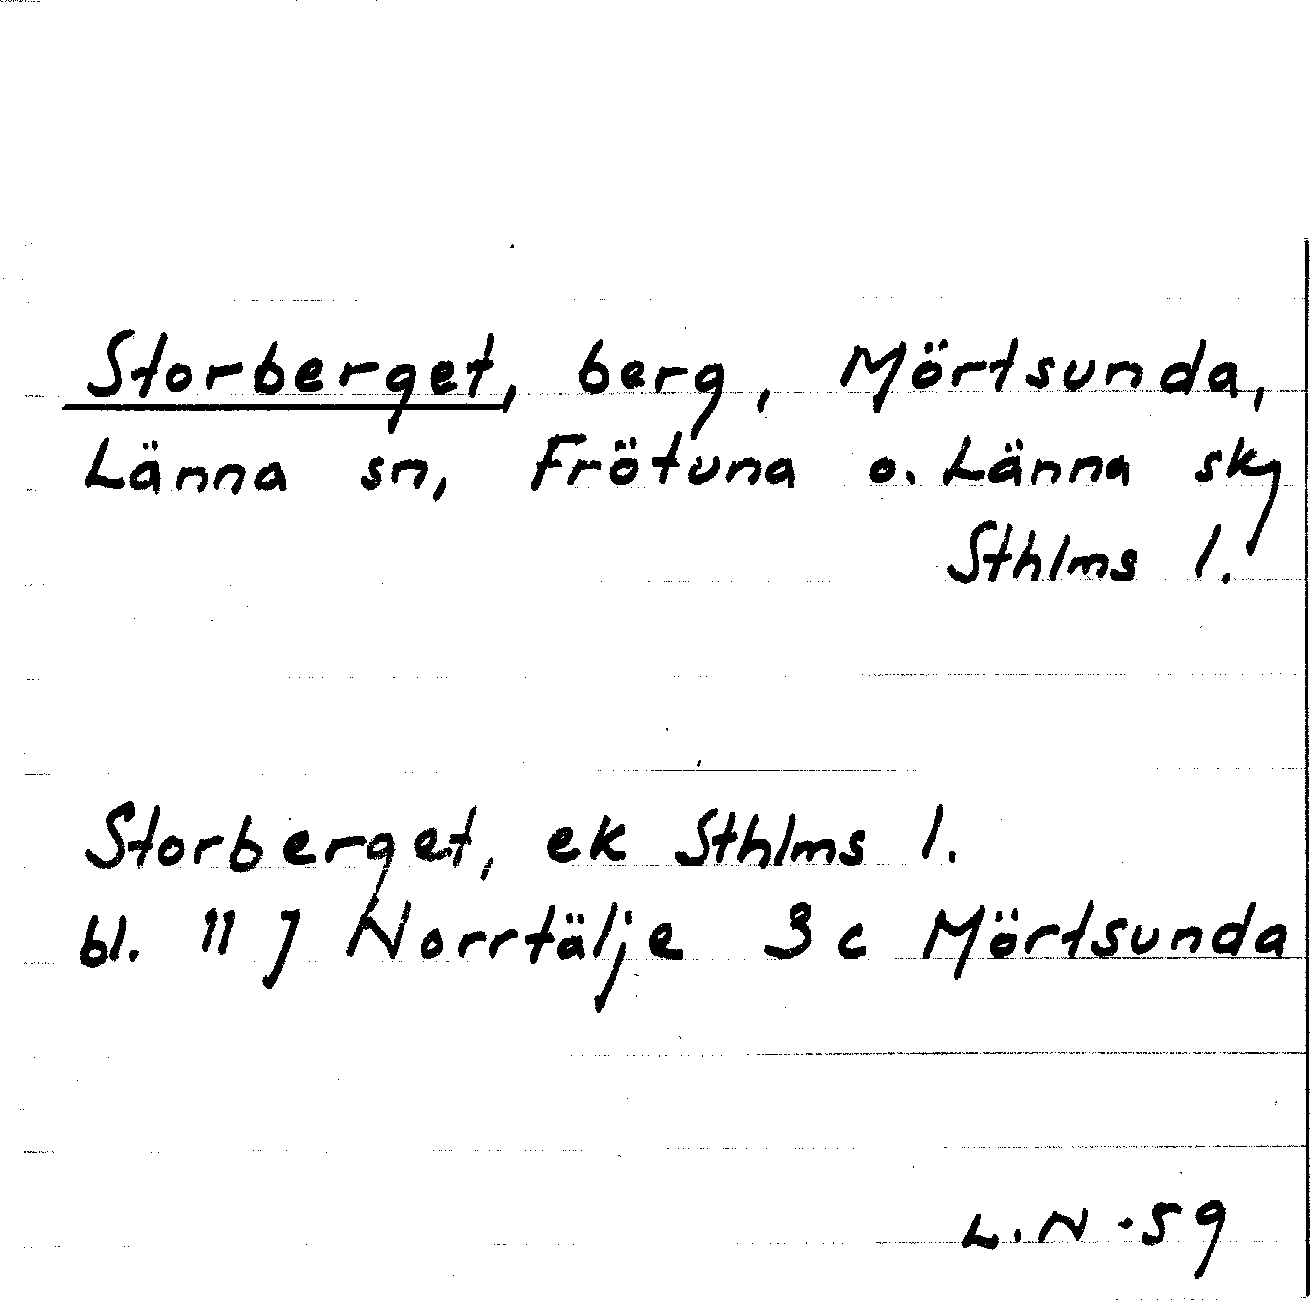 Storberget, berg, Mörtsunda,
Länna sn, Frötuna o. Länna skg
Sthlms l.
Storberget, ek Sthlms l.
bl. 11 J Norrtälje 3 c Mörtsunda
L.N -59